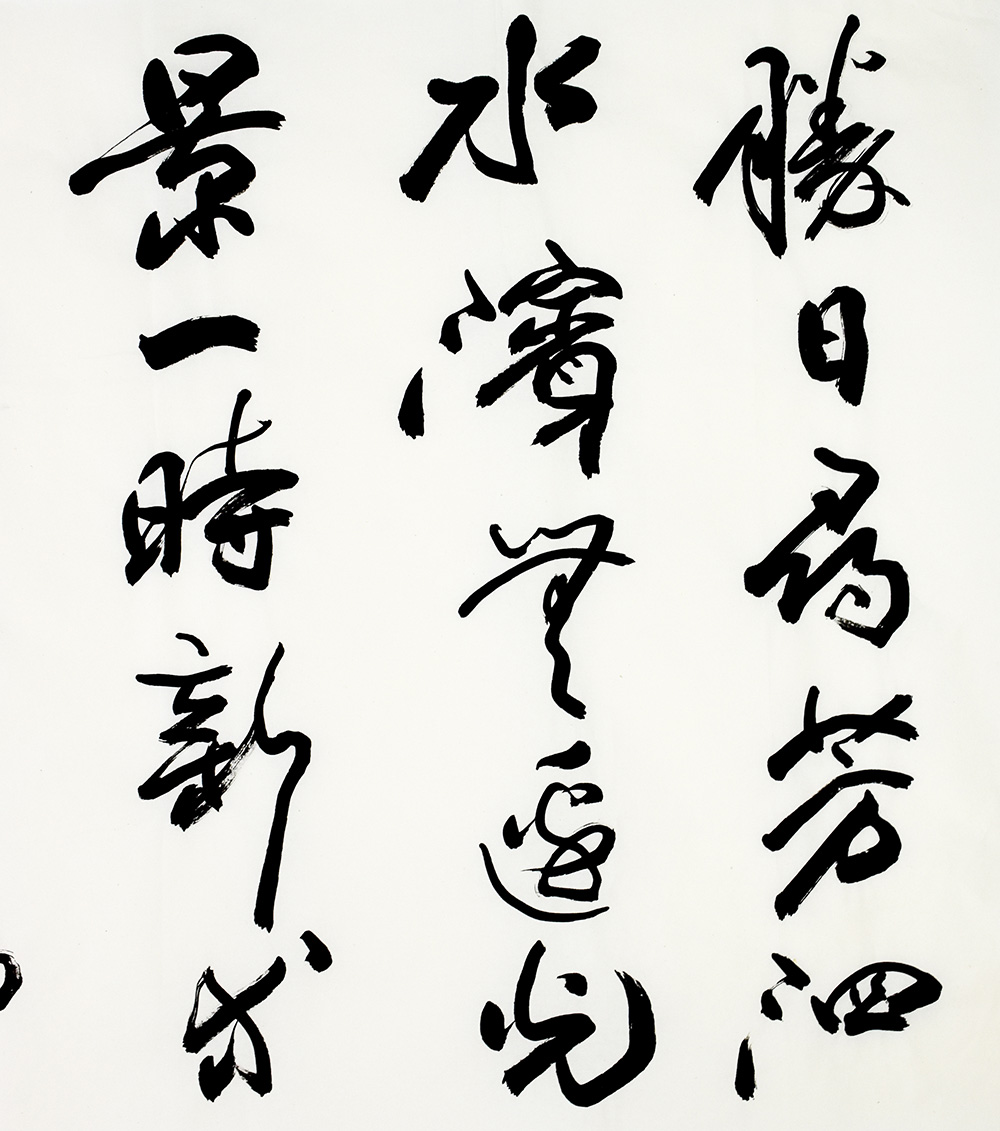 勝日尋芳泗
水濱無邊光
景一時新等